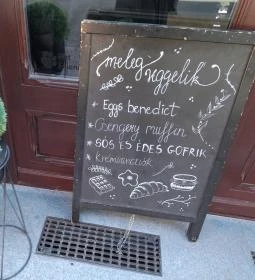 meleg reggelik
* Eggs benedict
* Csengery muffin
* SÓS ÉS ÉDES GOFRIK
* Krémvariációk